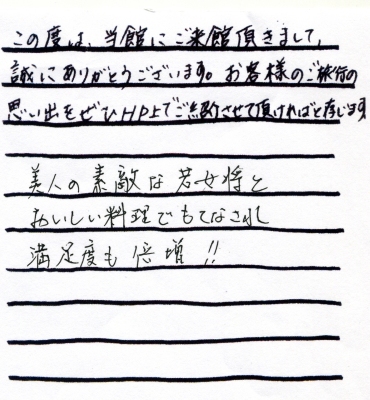 この度は、当館にご来館頂きまして、
誠にありがとうございます。お客様のご旅行の
思い出をぜひHP上でご紹介させて頂ければと存じます
美人の素敵な若女将と
おいしい料理でもてなされ
満足度も倍増!!